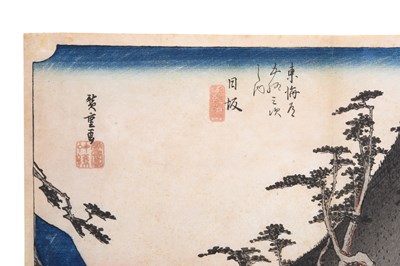 東海道
五拾三次
之内
日坂
廣重画